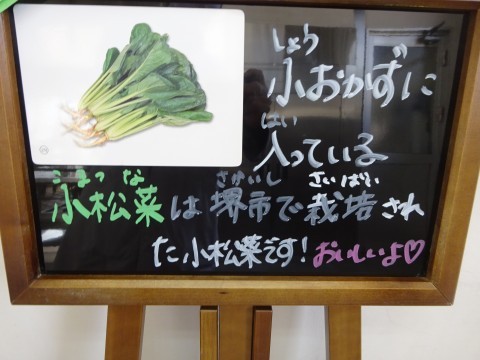 しょう
小おかずに
はい
入っている
こまつな さかいし さいばい
小松菜は堺市で栽培され
た小松菜です！おいしいよ♡